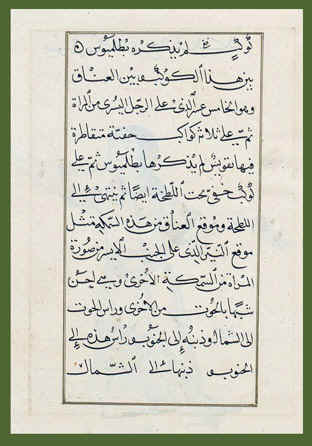 كوكب لم يذكره بطلميوس
بين هذا الكوكب وبين العناق
وهو الخامس عشر الذي على الرجل اليسرى من المراة
ثم على ثلاثة كواكب خفية متقاطرة
فيها تقويس لم يذكرها بطلميوس ثم على
كوكب خفي تحت اللطخة ايضا ثم ينتهي الى
اللطخة وموقع العناق من هذه السمكة مثل
موقع النير الذي على الجنب الايسر من صورة
المراة من السمكة الاخرى وهي احسن
شبها بالحوت من الاخرى وراس الحوت
الى الشمال وذنبه الى الجنوب وراس هذه الى
الجنوب وذنبها الى الشمال